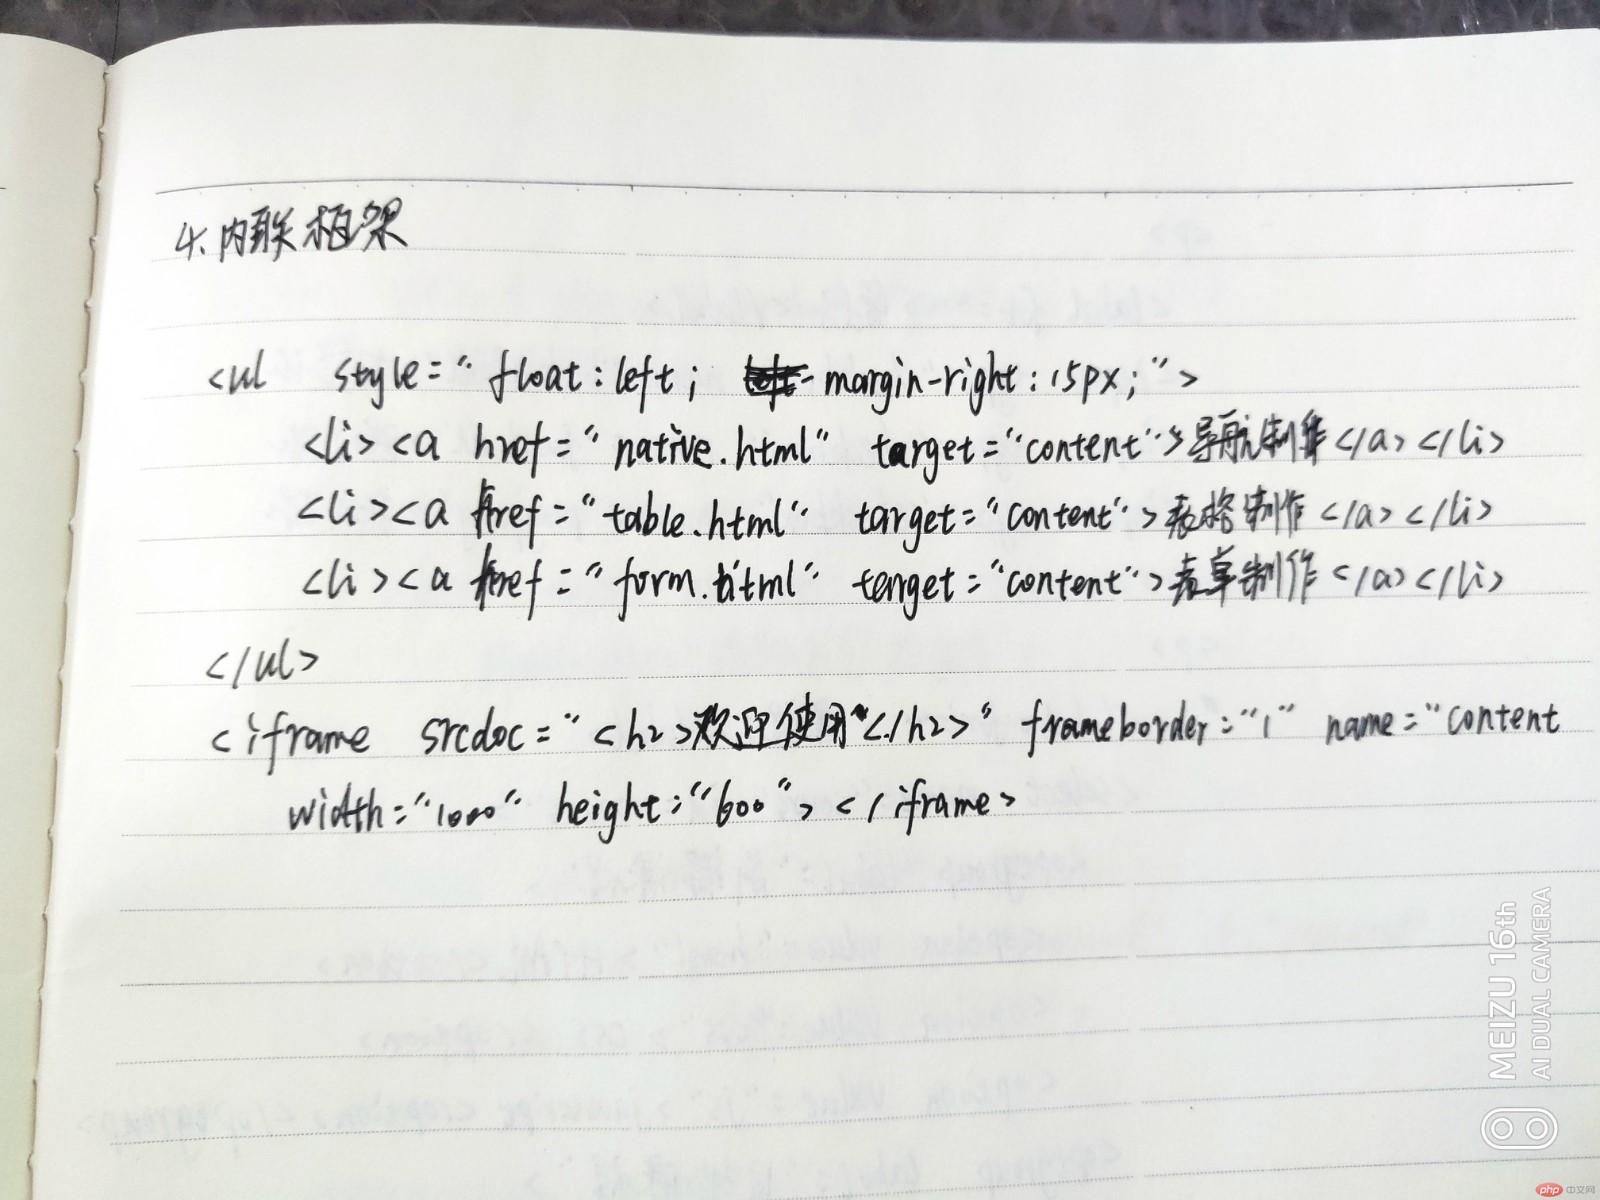 4.内联框架
<ul style="float:left; margin-right:15px;">
<li><a href="native.html" target="content">导航制作</a></li>
<li><a href="table.html" target="content">表格制作</a></li>
<li><a href="form.html" target="content">表单制作</a></li>
</ul>
<iframe srcdoc="<h2>欢迎使用"</h2>" frameborder="1" name="content
width="1000" height="600"></iframe>
MEIZU 16th
AI DUAL CAMERA
php 中文网